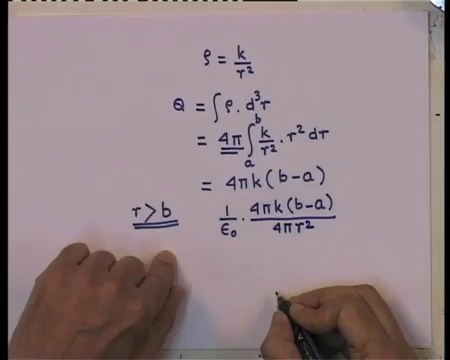 ρ = k/r²
Q = ∫ρ. d³r
= 4π ∫ₐᵇ k/r² · r² dr
= 4πk(b-a)
r > b 1/ε₀ · 4πk(b-a)/4πr²